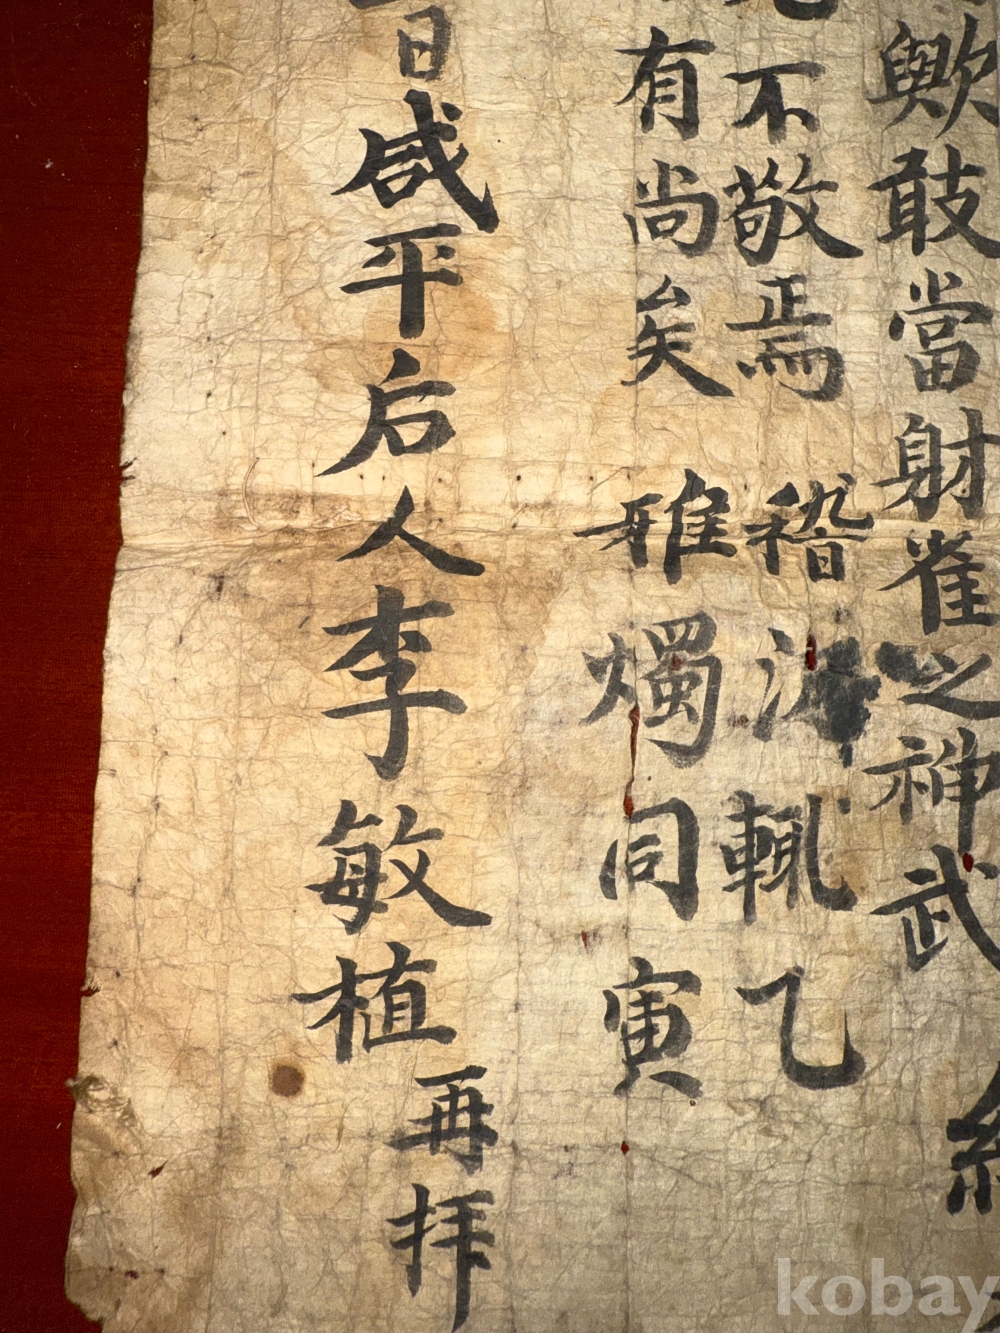 歟敢當射雀之神武
不敬焉 稽 輒乙
有尚矣 雅燭同寅
日咸平后人李敏植再拜
kobay